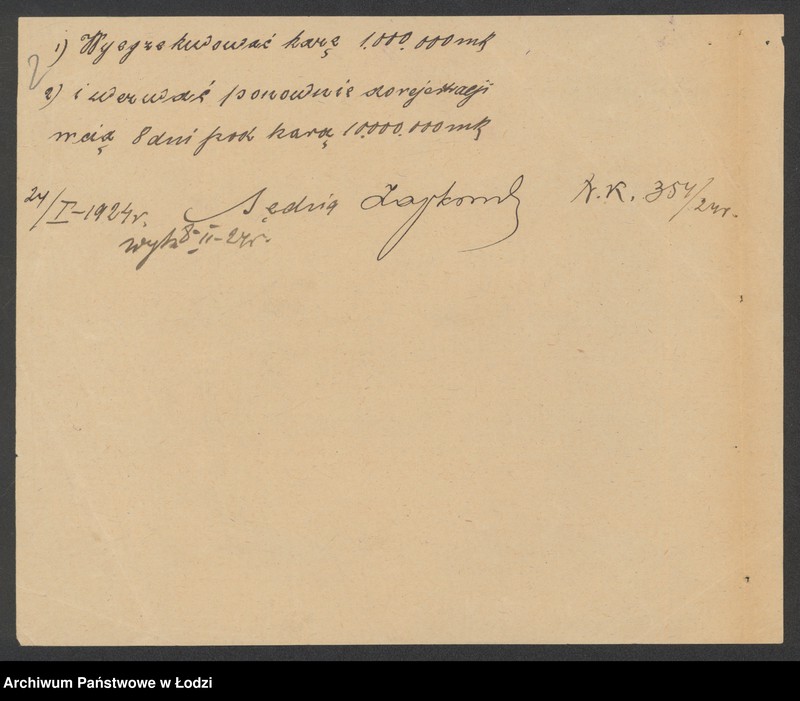 1) Wyegzekwować karę 1.000.000 mk
2
2) i wezwać ponownie do rejestracji
w cią 8 dni pod karą 10.000.000 mk
24/I-1924 r. Sędzia N.K. 354/24 r.
wyk 8-II-24 r.
Archiwum Państwowe w Łodzi